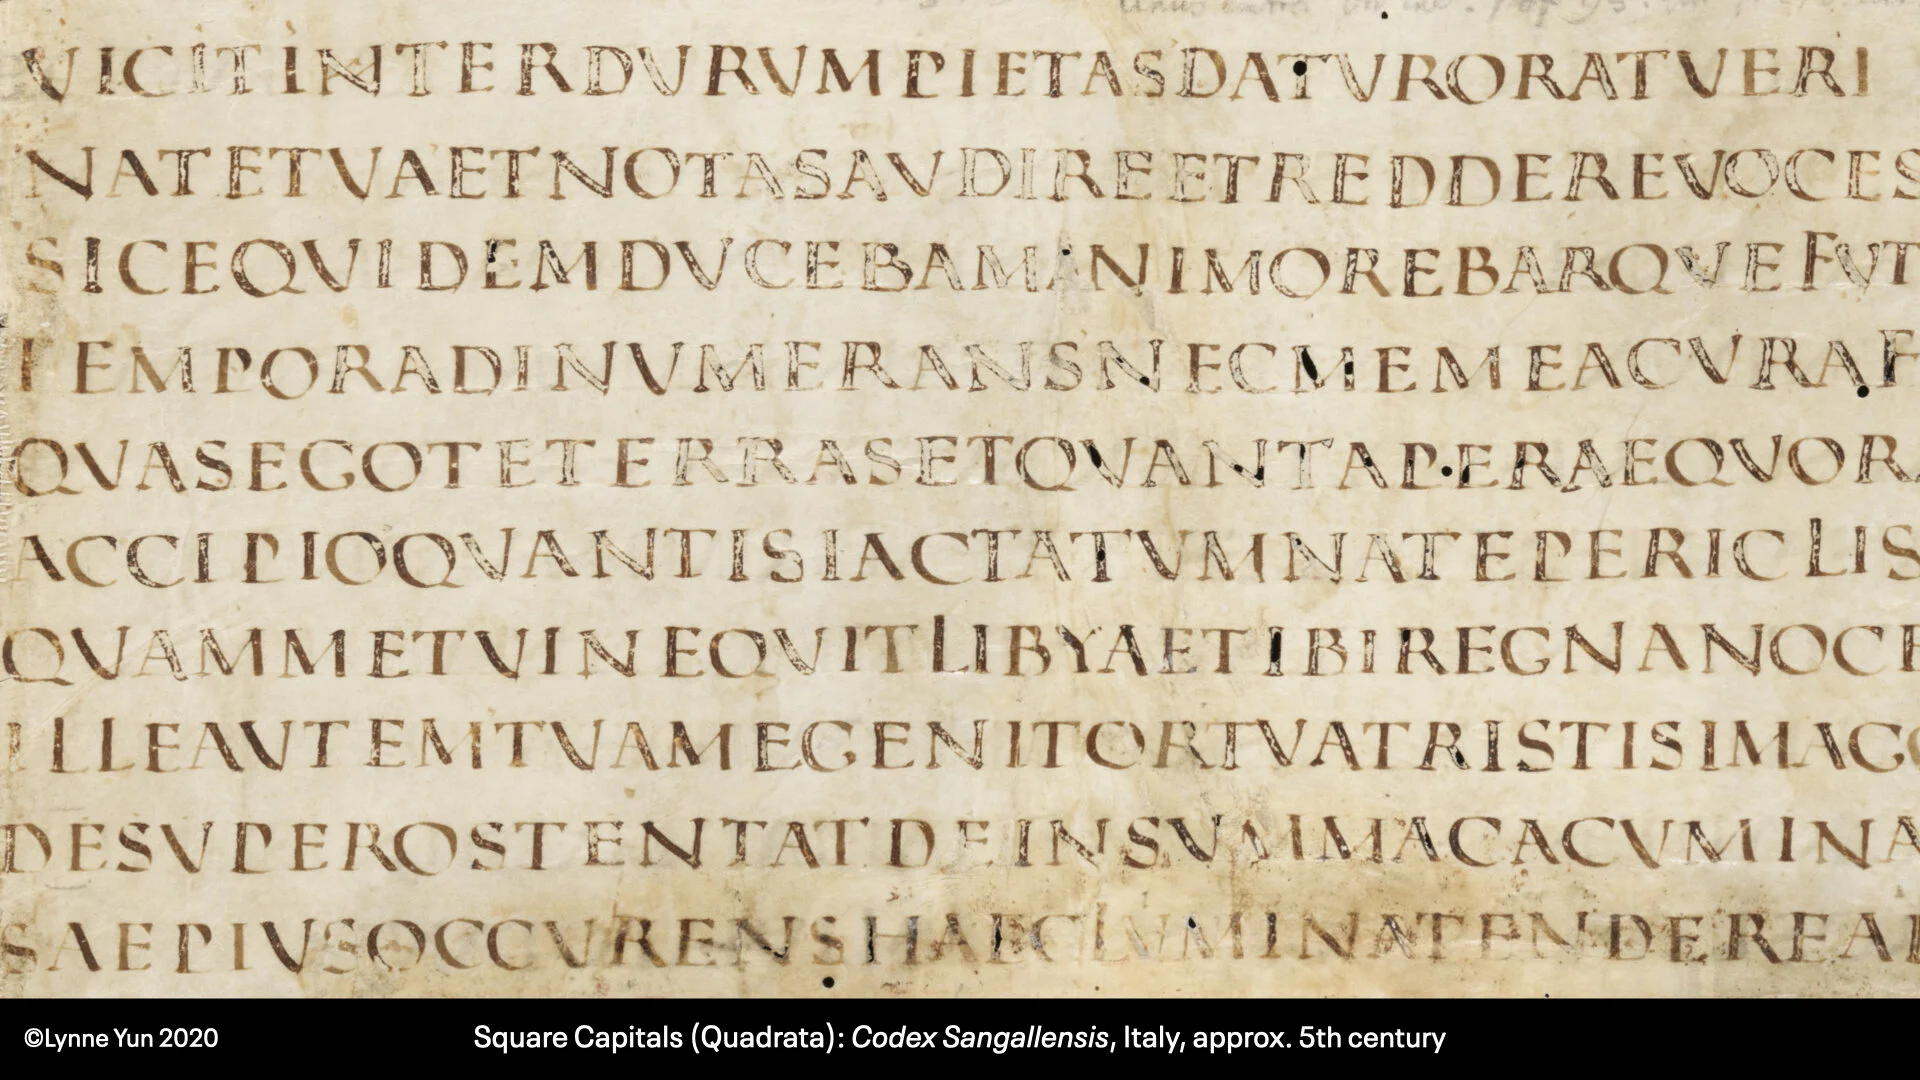 VICITINTERDVRVMPIETASDATVRORATVERI
NATETVAETNOTASAVDIREETREDDEREVOCES
SICEQVIDEMDVCEBAMANIMOREBARQVEFVT
TEMPORADINVMERANSNECMEMEACVRAF
QVASEGOTETERRASETQVANTAPERAEQVORA
ACCIPIOQVANTISIACTATVMNATEPERICLIS
QVAMMETVINEQVITLIBYAETIBIREGNANOCE
ILLEAVTEMTVAMEGENITORTVATRISTISIMAGO
DESVPEROSTENTATDEINSVMMACACVMINA
SAEPIVSOCCVRENSHAECLVMINATENDEREAD
©Lynne Yun 2020
Square Capitals (Quadrata): Codex Sangallensis, Italy, approx. 5th century